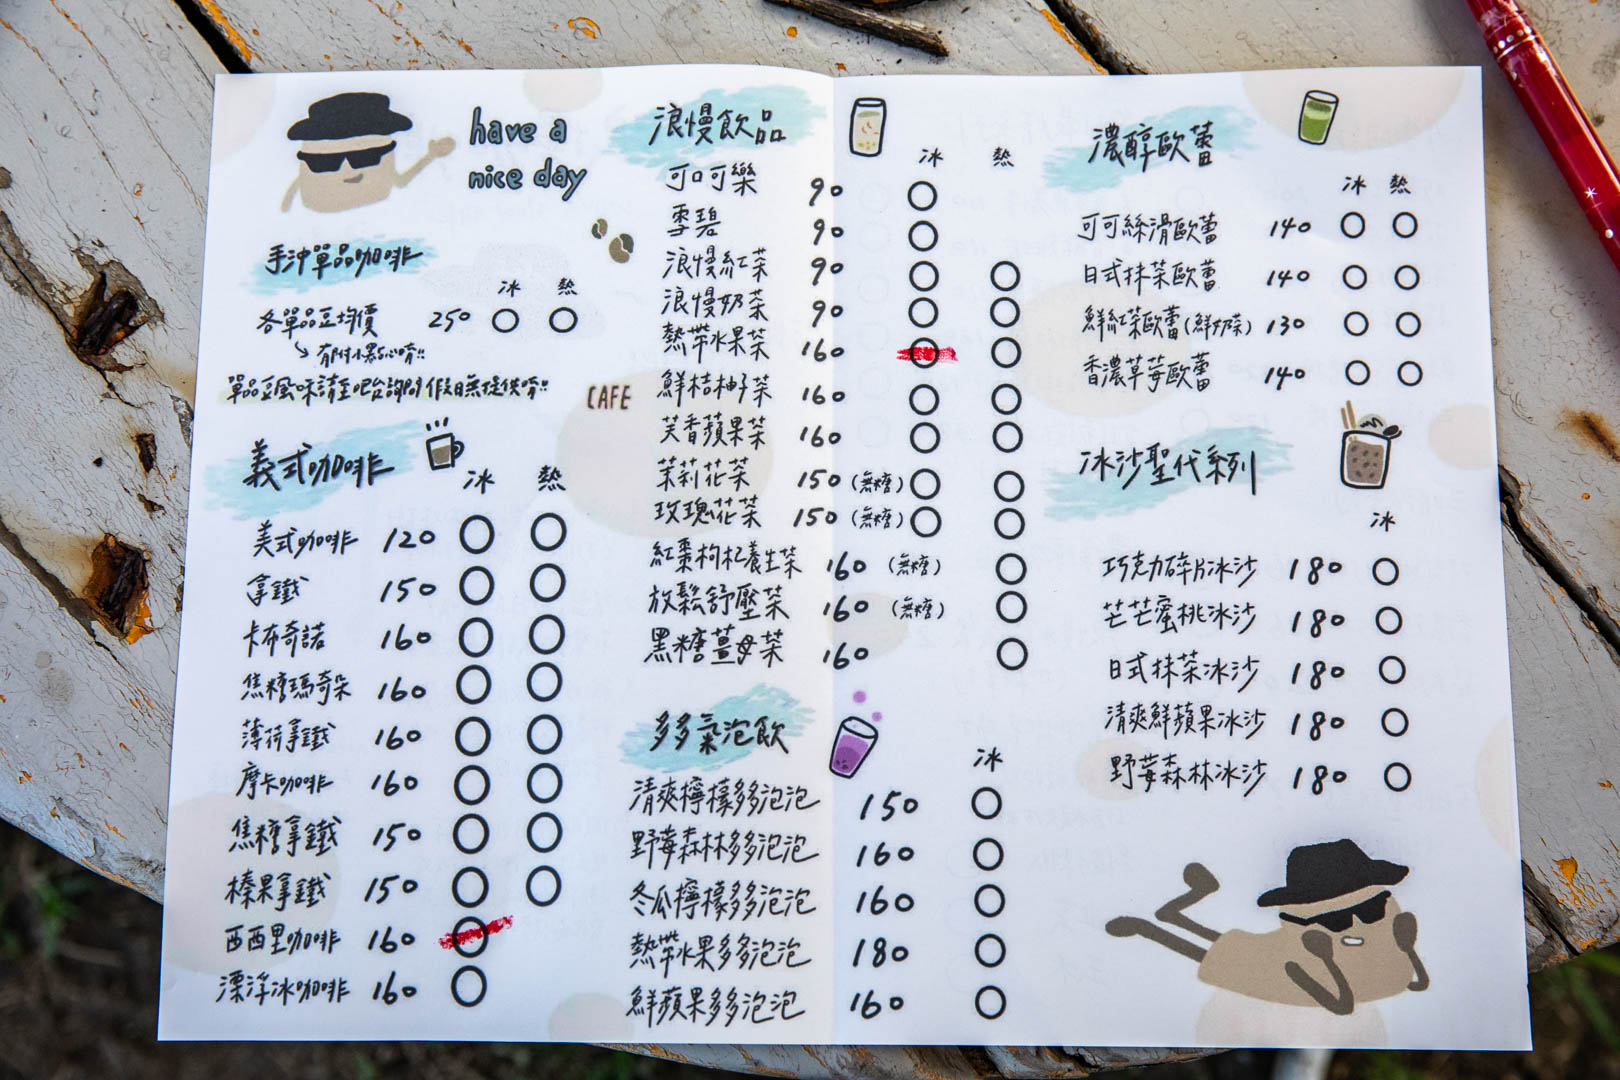 have a
nice day
手沖單品咖啡
冰 熱
各單品豆均價 250
有附小點心唷!!
單品豆風味請至吧台詢問 假日無提供唷!!
CAFE
義式咖啡
冰 熱
美式咖啡 120
拿鐵 150
卡布奇諾 160
焦糖瑪奇朵 160
薄荷拿鐵 160
摩卡咖啡 160
焦糖拿鐵 150
榛果拿鐵 150
西西里咖啡 160
漂浮冰咖啡 160
浪慢飲品
冰 熱
可口可樂 90
雪碧 90
浪慢紅茶 90
浪慢奶茶 90
熱帶水果茶 160
鮮桔柚子茶 160
芙香蘋果茶 160
茉莉花茶 150 (無糖)
玫瑰花茶 150 (無糖)
紅棗枸杞養生茶 160 (無糖)
放鬆舒壓茶 160 (無糖)
黑糖薑母茶 160
多多氣泡飲
冰
清爽檸檬多多泡泡 150
野莓森林多多泡泡 160
冬瓜檸檬多多泡泡 160
熱帶水果多多泡泡 180
鮮蘋果多多泡泡 160
濃醇歐蕾
冰 熱
可可絲滑歐蕾 140
日式抹茶歐蕾 140
鮮紅茶歐蕾(鮮奶茶) 130
香濃草莓歐蕾 120
冰沙聖代系列
冰
巧克力碎片冰沙 180
芒芒蜜桃冰沙 180
日式抹茶冰沙 180
清爽鮮蘋果冰沙 180
野莓森林冰沙 180